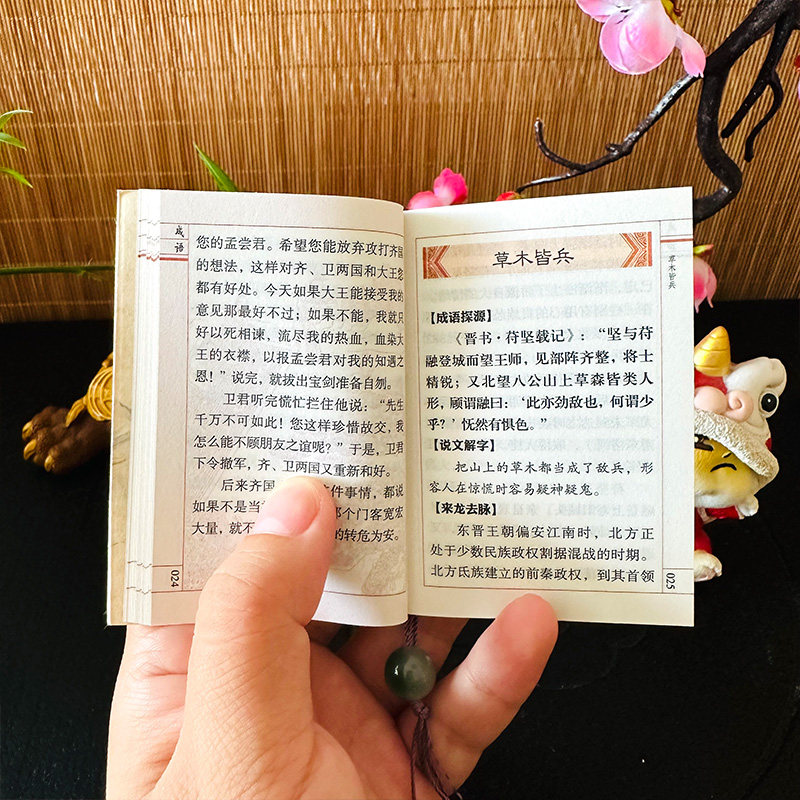 成语
您的孟尝君。希望您能放弃攻打齐国
的想法，这样对齐、卫两国和大王您
都有好处。今天如果大王能接受我的
意见那最好不过；如果不能，我就只
好以死相谏，流尽我的热血，血染大
王的衣襟，以报孟尝君对我的知遇之
恩！”说完，就拔出宝剑准备自刎。
卫君听完慌忙拦住他说：“先生
千万不可如此！您这样珍惜故交，我
怎么能不顾朋友之谊呢？”于是，卫君
下令撤军，齐、卫两国又重新和好。
后来齐国 件事情，都说
如果不是当 那个门客宽宏
大量，就不 的转危为安。
024
草木皆兵
草木皆兵
【成语探源】
《晋书·苻坚载记》：“坚与苻
融登城而望王师，见部阵齐整，将士
精锐；又北望八公山上草森皆类人
形，顾谓融曰：‘此亦劲敌也，何谓少
乎？’怃然有惧色。”
【说文解字】
把山上的草木都当成了敌兵，形
容人在惊慌时容易疑神疑鬼。
【来龙去脉】
东晋王朝偏安江南时，北方正
处于少数民族政权割据混战的时期。
北方氐族建立的前秦政权，到其首领
025